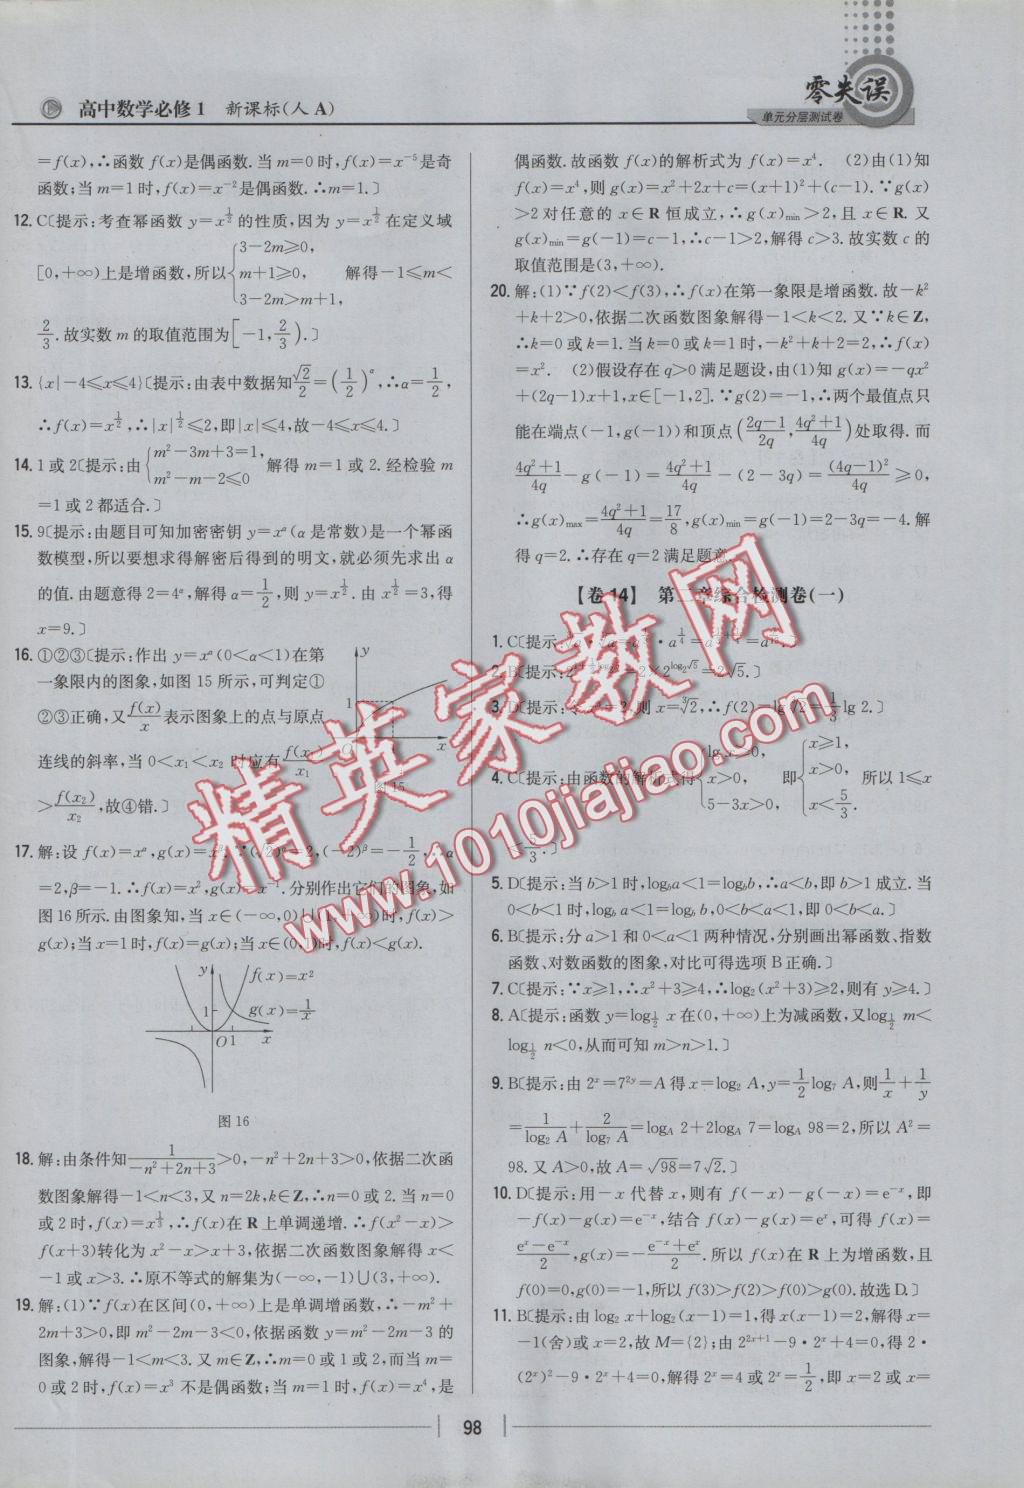 高中数学必修1 新课标(人A)
零失误
单元分层测试卷
=f(x),∴函数 f(x)是偶函数.当 m=0时,f(x)=x⁻⁵是奇
函数;当 m=1时,f(x)=x⁻²是偶函数.∴m=1.〕
12.C〔提示:考查幂函数 y=x^{1/2}的性质,因为 y=x^{1/2}在定义域
[0,+∞)上是增函数,所以{3-2m≥0, m+1≥0, 3-2m>m+1, 解得-1≤m<
2/3.故实数 m 的取值范围为[-1,2/3).〕
13.{x|-4≤x≤4}〔提示:由表中数据知√2/2=(1/2)^α,∴α=1/2,
∴f(x)=x^{1/2},∴|x|^{1/2}≤2,即|x|≤4,故-4≤x≤4.〕
14.1或2〔提示:由{m²-3m+3=1, m²-m-2≤0 解得 m=1或2.经检验 m
=1或2都适合.〕
15.9〔提示:由题目可知加密密钥 y=x^α(α是常数)是一个幂函
数模型,所以要想求得解密后得到的明文,就必须先求出 α
的值.由题意得 2=4^α,解得 α=1/2,则 y=x^{1/2}.由 x^{1/2}=3,得
x=9.〕
16.①②③〔提示:作出 y=x^α(0<α<1)在第
一象限内的图象,如图15所示,可判定①
②③正确,又f(x)/x表示图象上的点与原点
连线的斜率,当 0<x₁<x₂ 时应有f(x₁)/x₁
>f(x₂)/x₂,故④错.〕
y
1
O
x
图15
17.解:设 f(x)=x^α,g(x)=x^β.∵(√2)^α=2,(-2)^β=-1/2,∴α
=2,β=-1.∴f(x)=x²,g(x)=x⁻¹.分别作出它们的图象,如
图16所示.由图象知,当 x∈(-∞,0)∪(1,+∞)时,f(x)>
g(x);当 x=1时,f(x)=g(x);当 x∈(0,1)时,f(x)<g(x).
y
f(x)=x²
g(x)=1/x
1
O 1 x
图16
18.解:由条件知1/(-n²+2n+3)>0,-n²+2n+3>0,依据二次函
数图象解得-1<n<3,又 n=2k,k∈Z,∴n=0或2.当 n=0
或2时,f(x)=x^{1/3},∴f(x)在 R 上单调递增.∴f(x²-x)>
f(x+3)转化为 x²-x>x+3,依据二次函数图象解得 x<
-1或 x>3.∴原不等式的解集为(-∞,-1)∪(3,+∞).
19.解:(1)∵f(x)在区间(0,+∞)上是单调增函数,∴-m²+
2m+3>0,即 m²-2m-3<0,依据函数 y=m²-2m-3的
图象,解得-1<m<3.又 m∈Z,∴m=0或1或2,而当 m=
0或2时,f(x)=x³ 不是偶函数;当 m=1时,f(x)=x⁴,是
偶函数.故函数 f(x)的解析式为 f(x)=x⁴. (2)由(1)知
f(x)=x⁴,则 g(x)=x²+2x+c=(x+1)²+(c-1).∵g(x)
>2对任意的 x∈R 恒成立,∴g(x)min>2,且 x∈R.又
g(x)min=g(-1)=c-1,∴c-1>2,解得 c>3.故实数 c 的
取值范围是(3,+∞).
20.解:(1)∵f(2)<f(3),∴f(x)在第一象限是增函数.故-k²
+k+2>0,依据二次函数图象解得-1<k<2.又∵k∈Z,
∴k=0或 k=1.当 k=0或 k=1时,-k²+k+2=2,∴f(x)
=x². (2)假设存在 q>0满足题设,由(1)知 g(x)=-qx²
+(2q-1)x+1,x∈[-1,2].∵g(2)=-1,∴两个最值点只
能在端点(-1,g(-1))和顶点((2q-1)/2q,(4q²+1)/4q)处取得.而
(4q²+1)/4q-g(-1)=(4q²+1)/4q-(2-3q)=(4q-1)²/4q≥0,
∴g(x)max=(4q²+1)/4q=17/8,g(x)min=g(-1)=2-3q=-4.解
得 q=2.∴存在 q=2满足题意.
【卷14】 第二章综合检测卷(一)
1.C
2.B
3.D
4.C〔提示:由函数的解析式得{lg x≥0, x>0, 5-3x>0, 即{x≥1, x>0, x<5/3. 所以 1≤x
<5/3.〕
5.D〔提示:当 b>1时,log_b a<1=log_b b,∴a<b,即 b>1成立.当
0<b<1时,log_b a<1=log_b b,0<b<a<1,即 0<b<a.〕
6.B〔提示:分 a>1和 0<a<1两种情况,分别画出幂函数、指数
函数、对数函数的图象,对比可得选项B正确.〕
7.C〔提示:∵x≥1,∴x²+3≥4,∴log₂(x²+3)≥2,则有 y≥4.〕
8.A〔提示:函数 y=log_{1/2} x 在(0,+∞)上为减函数,又log_{1/2} m<
log_{1/2} n<0,从而可知 m>n>1.〕
9.B〔提示:由 2^x=7^{2y}=A 得 x=log₂ A,y=1/2 log₇ A,则1/x+1/y
=1/log₂ A+2/log₇ A=log_A 2+2log_A 7=log_A 98=2,所以 A²=
98.又 A>0,故 A=√98=7√2.〕
10.D〔提示:用-x 代替 x,则有 f(-x)-g(-x)=e^{-x},即
-f(x)-g(x)=e^{-x},结合 f(x)-g(x)=e^x,可得 f(x)=
(e^x-e^{-x})/2,g(x)=-(e^{-x}+e^x)/2.所以 f(x)在 R 上为增函数,且
f(0)=0,g(0)=-1,所以 f(3)>f(2)>f(0)>g(0).故选D.〕
11.B〔提示:由 log₂ x+log₂(x-1)=1,得 x(x-1)=2,解得 x=
-1(舍)或 x=2,故 M={2};由 2^{2x+1}-9·2^x+4=0,得 2·
(2^x)²-9·2^x+4=0,解得 2^x=4或 2^x=1/2,即 x=2或 x=
98
精英家教网
www.1010jiajiao.com